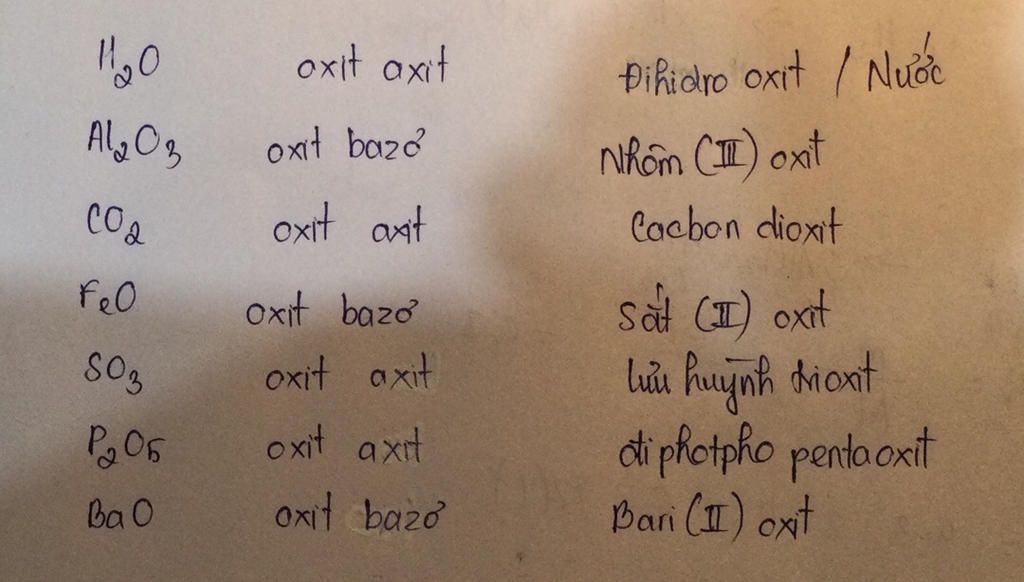 H₂O oxit axit Đihidro oxit / Nước
Al₂O₃ oxit bazơ Nhôm (III) oxit
CO₂ oxit axit Cacbon dioxit
FeO oxit bazơ Sắt (II) oxit
SO₃ oxit axit lưu huỳnh trioxit
P₂O₅ oxit axit điphotpho pentaoxit
BaO oxit bazơ Bari (II) oxit